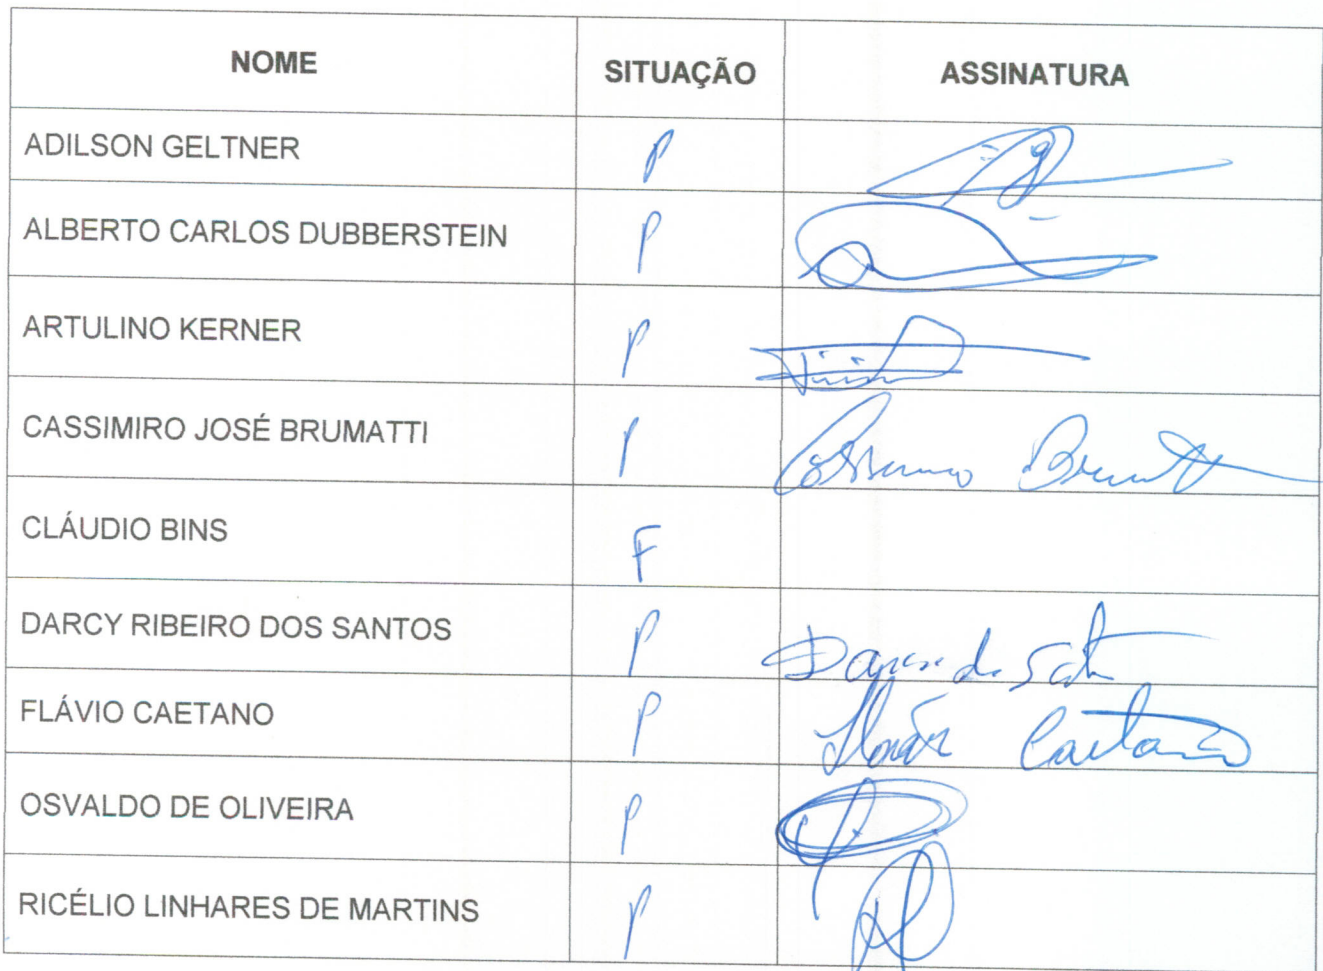 NOME SITUAÇÃO ASSINATURA
ADILSON GELTNER P
ALBERTO CARLOS DUBBERSTEIN P
ARTULINO KERNER P
CASSIMIRO JOSÉ BRUMATTI P
CLÁUDIO BINS F
DARCY RIBEIRO DOS SANTOS P
FLÁVIO CAETANO P Caetano
OSVALDO DE OLIVEIRA P
RICÉLIO LINHARES DE MARTINS P